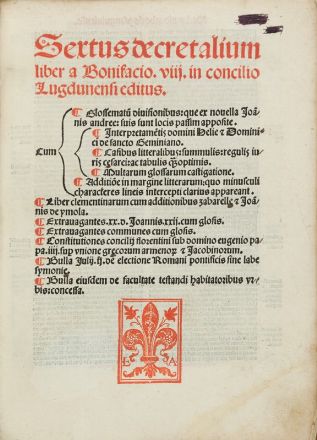 Sextus decretalium
liber a Bonifacio. viij. in concilio
Lugdunensi editus.
Cum
¶ Glossematũ divisionibus: que ex novella Joã-
nis andree: suis sunt locis passim apposite.
¶ Interpretamẽtis domini Helie ⁊ Domini-
ci de sancto Geminiano.
¶ Casibus litteralibꝰ: summulis: regulis iu-
ris cesarei: ac tabulis q̃optimis.
¶ Multarum glossarum castigatione.
¶ Additiõe in margine litterarum: quo minusculi
characteres lineis intercepti clarius appareant.
¶ Liber clementinarum cum additionibus zabarelle ⁊ Joã-
nis de ymola.
¶ Extrauagantes. xx. d. Joannis. xxij. cum glosis.
¶ Extrauagantes communes cum glosis.
¶ Constitutiones concilij florentini sub domino eugenio pa-
pa. iiij. sup vnione grecorum armenoꝝ ⁊ Jacobinorum.
¶ Bulla Julij. ij. de electione Romani pontificis sine labe
symonie.
¶ Bulla eiusdem de facultate testandi habitatoribus vr-
bis: concessa.
L A